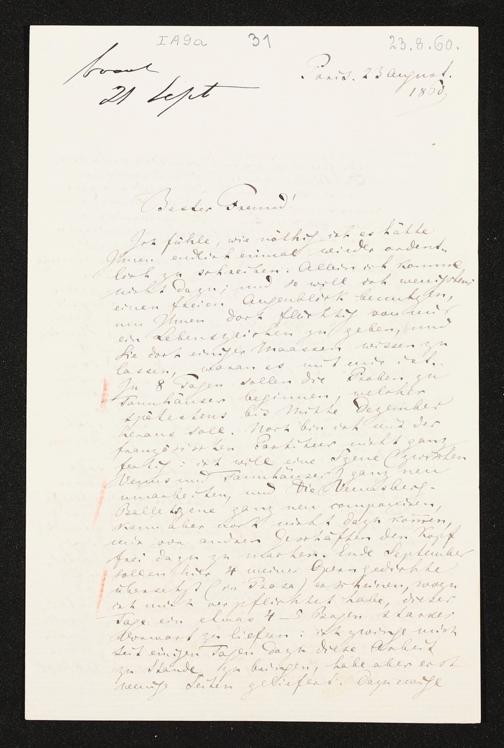 IA9a 31 23.8.60.
21 Sept
Paris. 23 August.
1860.
Bester Freund!
Ich fühle, wie nöthig ich es hätte
Ihnen endlich einmal wieder ordent-
lich zu schreiben. Allein ich komme
nicht dazu; und so will ich wenigstens
einen freien Augenblick benutzen,
um Ihnen doch flüchtig von mir
ein Lebenszeichen zu geben, und
Sie doch einiger Maassen wissen zu
lassen, woran es mit mir ist.
In 8 Tagen sollen die Proben zu
Tannhäuser beginnen, welcher
spätestens bis Mitte Dezember
heraus soll. Noch bin ich mit der
französischen Partitur nicht ganz
fertig: ich will eine Szene (zwischen
Venus und Tannhäuser) ganz neu
umarbeiten, und die Venusberg-
Balletszene ganz neu componiren,
kann aber noch nicht dazu kommen,
mir von anderen Geschäften den Kopf
frei dazu zu machen. Ende September
sollen hier 4 meiner Operngedichte
übersetzt (in Prosa) erscheinen, wozu
ich mich verpflichtet habe, dieser
Tage ein etwas 4-5 Bogen starkes
Vorwort zu liefern: ich zwinge mich
seit einigen Tagen dazu diese Arbeit
zu Stande zu bringen, habe aber erst
wenige Seiten geliefert. Dazu